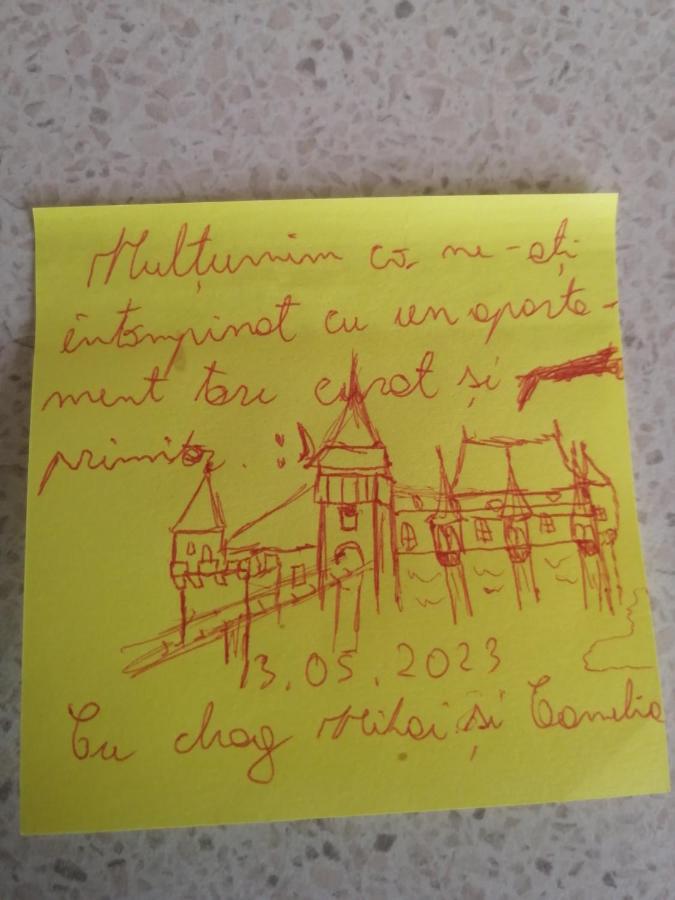 Mulțumim că ne-ați
întâmpinat cu un aparta-
ment tare curat și
primitor. :)
13.05.2023
Cu drag Mihai și Camelia